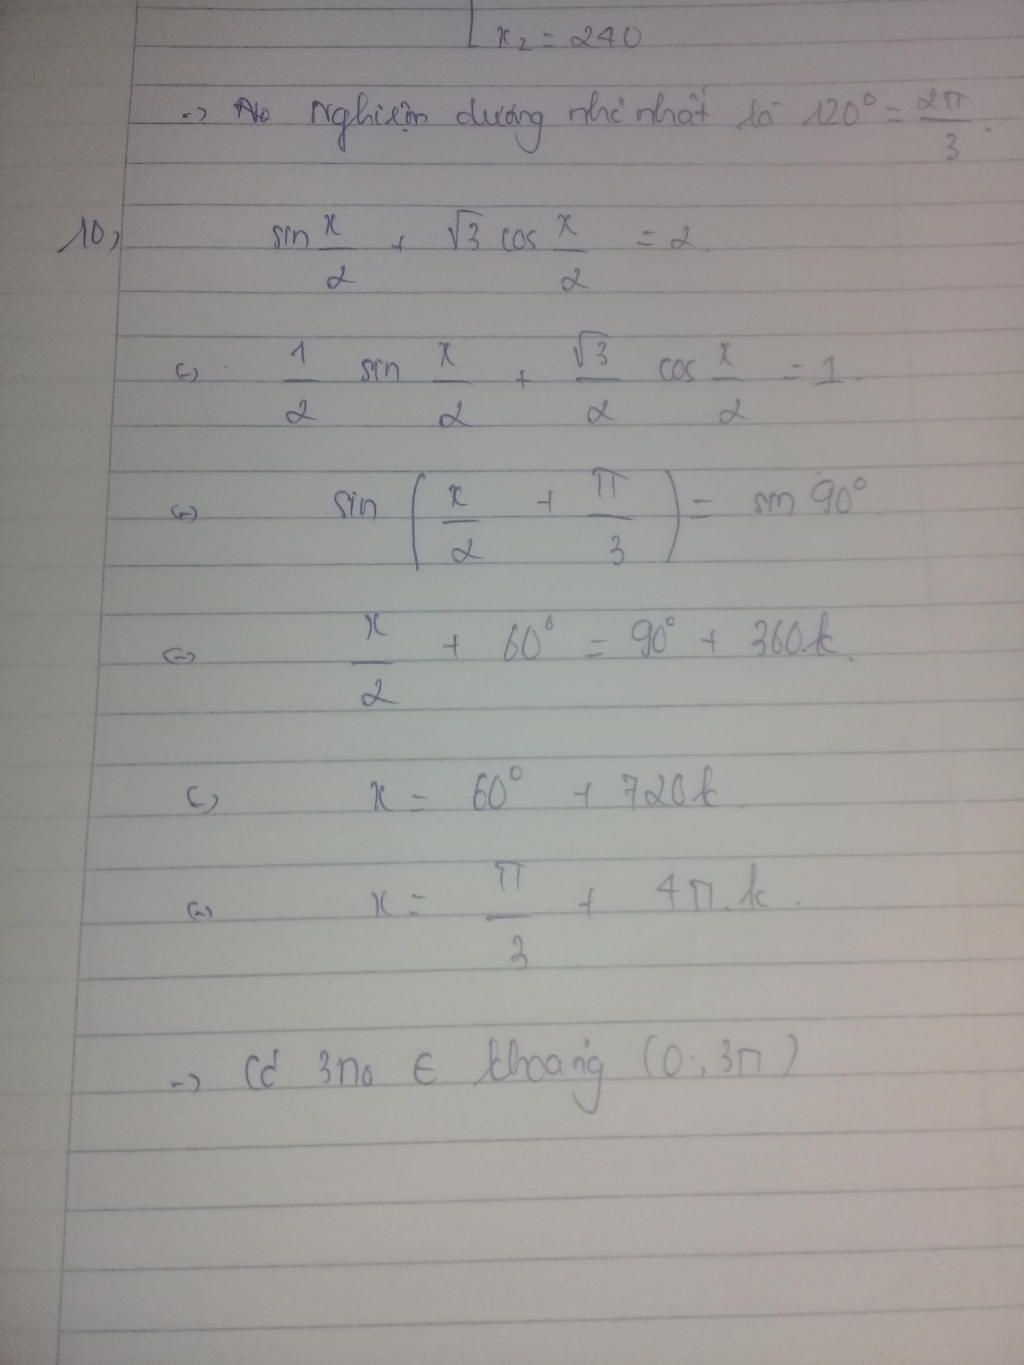 x₂ = 240
=> Nghiệm dương nhỏ nhất là 120° = 2π/3.
10, sin x/2 + √3 cos x/2 = 2
<=> 1/2 sin x/2 + √3/2 cos x/2 = 1.
<=> sin (x/2 + π/3) = sin 90°.
<=> x/2 + 60° = 90° + 360k.
<=> x = 60° + 720k
<=> x = π/3 + 4π.k.
=> Có 3 no ∈ khoảng (0; 3π)